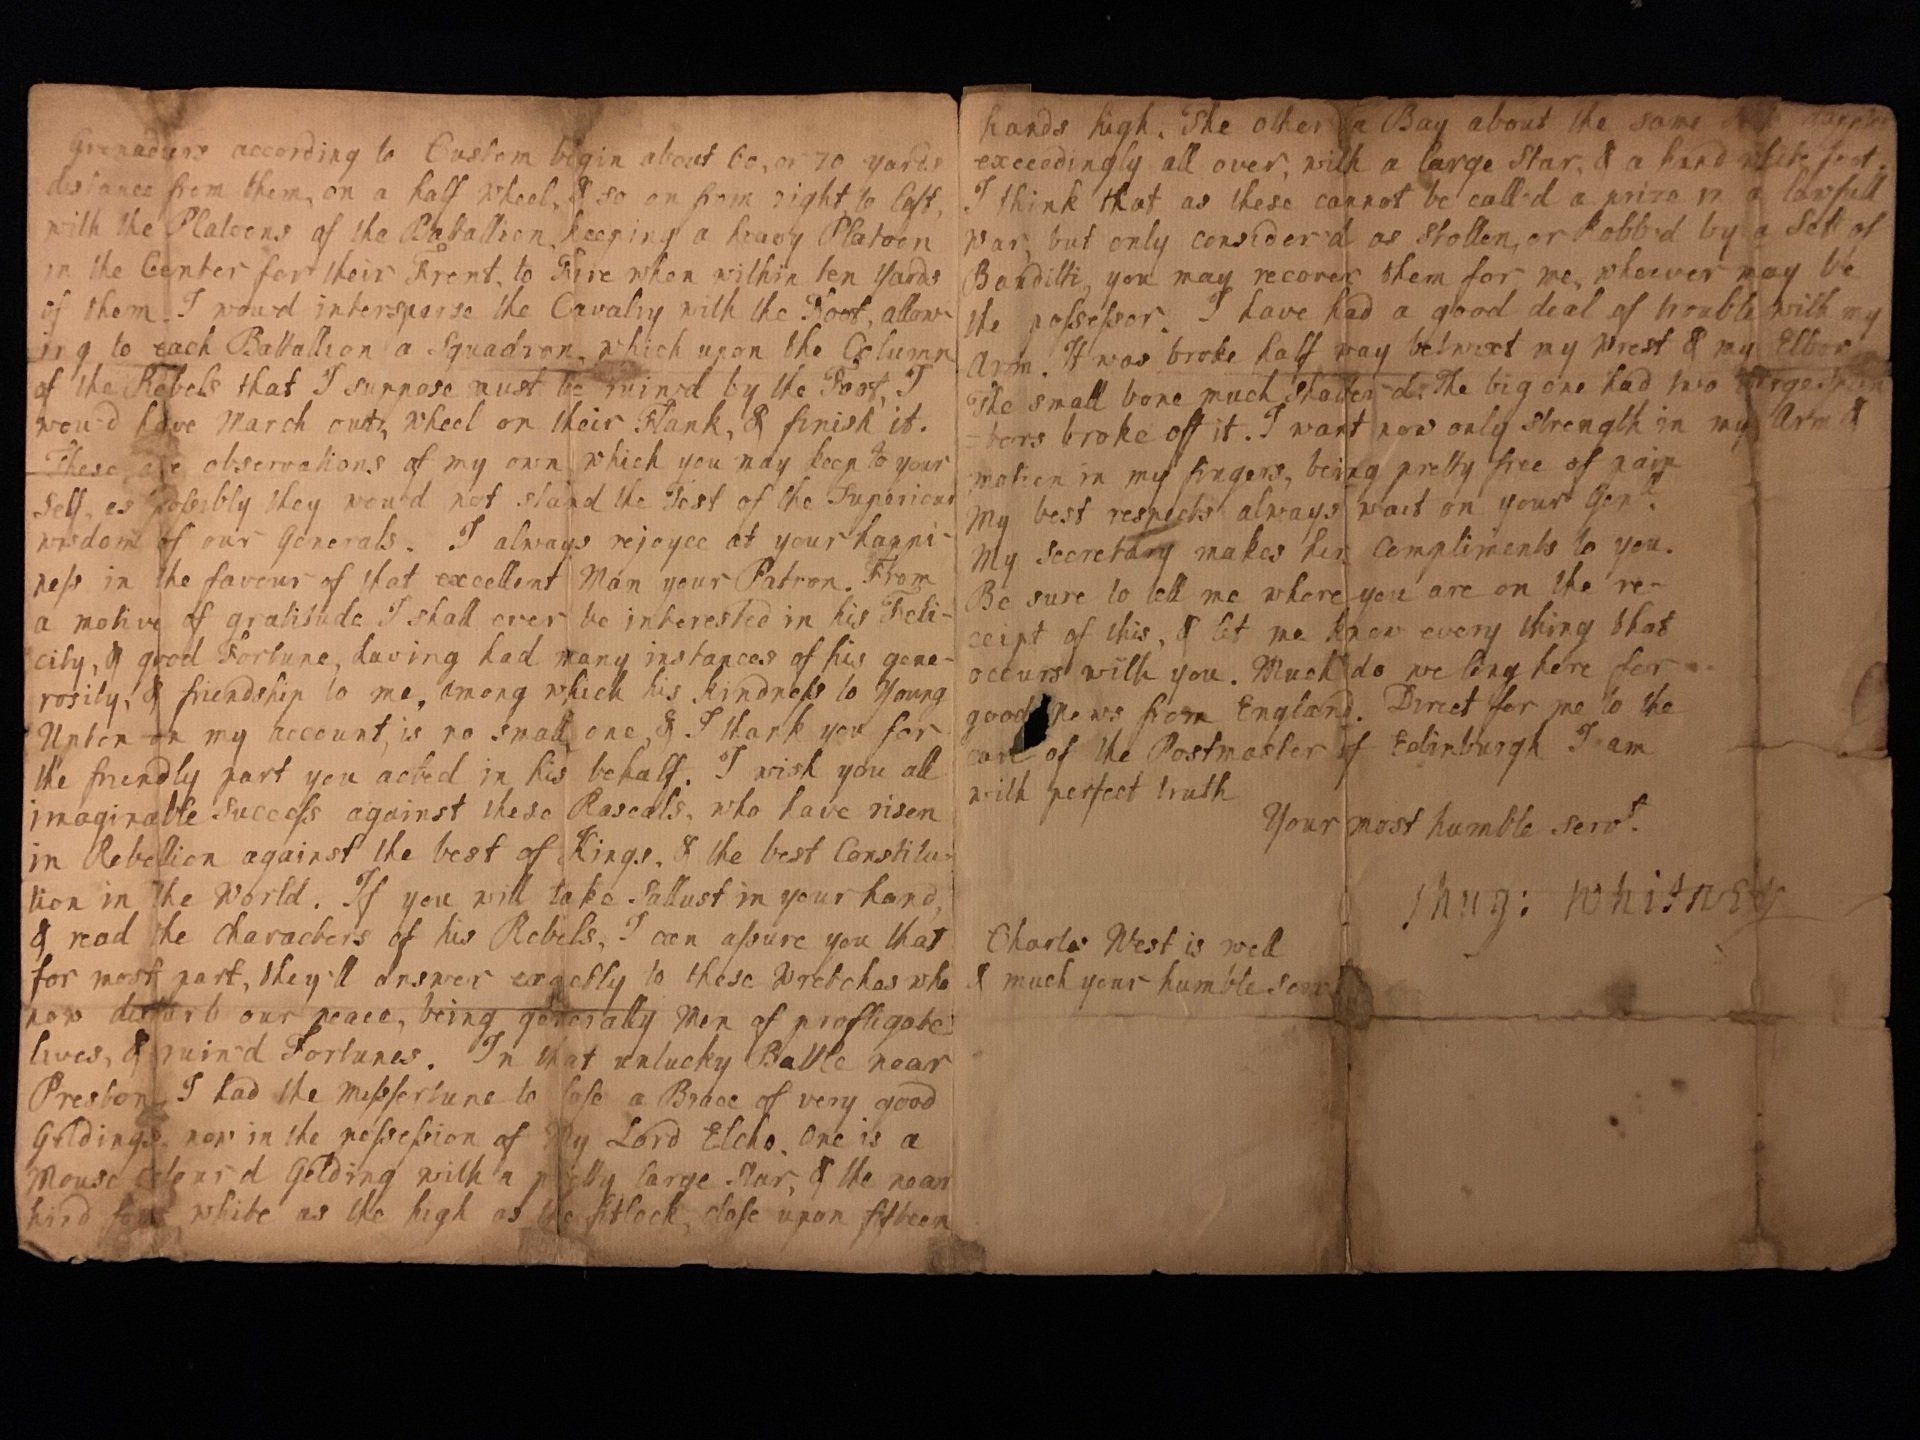 Grenadiers according to Custom begin about 60, or 70 yards
distance from them, on a half Wheel, & so on from right to left,
with the Platoons of the Battallion, keeping a heavy Platoon
in the Center for their Front, to Fire when within ten Yards
of them. I wou'd intersperse the Cavalry with the Foot, allow-
ing to each Battallion a Squadron, which upon the Column
of the Rebels that I suppose must be ruin'd by the Foot, I
wou'd have March out, Wheel on their Flank, & finish it.
These are observations of my own which you may keep to your
self, as possibly they wou'd not stand the Test of the Superiour
wisdom of our Generals. I always rejoyce at your happi-
ness in the favour of that excellent Man your Patron. From
a motive of gratitude I shall ever be interested in his Feli-
city, & good Fortune, having had many instances of his gene-
rosity, & friendship to me, among which his kindness to Young
Upton on my account, is no small one, & I thank you for
the friendly part you acted in his behalf. I wish you all
imaginable success against these Rascals, who have risen
in Rebelion against the best of Kings, & the best Constitu-
tion in the World. If you will take Sallust in your hand,
& read the Characters of his Rebels, I can assure you that
for most part, they'll answer exactly to these Wretches who
now disturb our peace, being generally Men of profligate
lives, & ruin'd Fortunes. In that unlucky Battle near
Preston I had the Missfortune to lose a Brace of very good
Geldings, now in the possession of My Lord Elcho. One is a
Mouse Colour'd Gelding with a pretty large Star, & the near
hind foot white as the high as the fitlock, close upon fifteen
hands high. The other a Bay about the same
exceedingly all over, with a large Star, & a hind white foot.
I think that as these cannot be call'd a prize in a lawfull
War, but only consider'd as Stollen, or Robb'd by a Sett of
Banditti, you may recover them for me, whoever may be
the possessor. I have had a good deal of trouble with my
Arm. It was broke half way betwext my Wrest & my Elbow
The small bone much Shatter'd. The big one had two large
=ters broke off it. I want now only strength in my Arm &
motion in my fingers, being pretty free of pain
My best respects always wait on your Genl.
My Secretary makes her Compliments to you.
Be sure to tell me where you are on the re-
ceipt of this, & let me know every thing that
occurs with you. Much do we long here for
good News from England. Direct for me to the
care of the Postmaster of Edinburgh I am
with perfect truth
Your most humble servt.
Shug: Whitney
Charles West is well
& much your humble servt